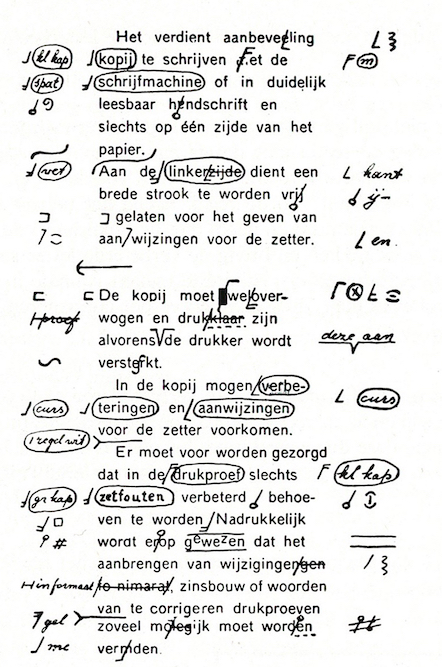 Het verdient aanbeveling
kl kap kopij te schrijven et de F m
spat schrijfmachine of in duidelijk
leesbaar handschrift en
slechts op één zijde van het
papier.
vet Aan de linkerzijde dient een kant
brede strook te worden vrij ij
gelaten voor het geven van
aan wijzingen voor de zetter. en.
De kopij moet wel over-
proef wogen en drukklaar zijn
alvorens de drukker wordt deze aan
versterkt.
In de kopij mogen verbe-
curs teringen en aanwijzingen curs
1 regel wit voor de zetter voorkomen.
Er moet voor worden gezorgd
dat in de drukproef slechts kl kap
gr kap zetfouten verbeterd behoe-
ven te worden Nadrukkelijk
# wordt erop gewezen dat het
aanbrengen van wijzigingen gen
, zinsbouw of woorden
van te corrigeren drukproeven
gel zoveel mogelijk moet worden
me verniden.